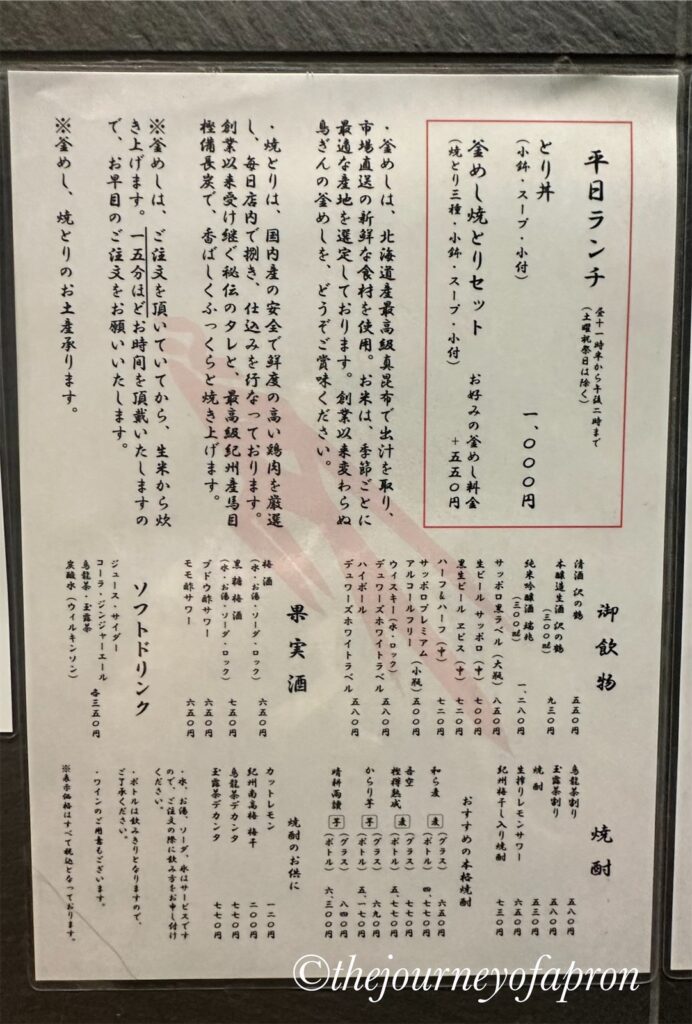 平日ランチ
昼十一時半から午後二時まで
(土曜祝祭日は除く)
とり丼 一、〇〇〇円
(小鉢・スープ・小付)
釜めし焼とりセット お好みの釜めし料金
(焼とり三種・小鉢・スープ・小付) +五五〇円
・釜めしは、北海道産最高級真昆布で出汁を取り、
市場直送の新鮮な食材を使用。お米は、季節ごとに
最適な産地を選定しております。創業以来変わらぬ
鳥ぎんの釜めしを、どうぞご賞味ください。
・焼とりは、国内産の安全で鮮度の高い鶏肉を厳選
し、毎日店内で捌き、仕込みを行なっております。
創業以来受け継ぐ秘伝のタレと、最高級紀州産馬目
樫備長炭で、香ばしくふっくらと焼き上げます。
※釜めしは、ご注文を頂いていてから、生米から炊
き上げます。一五分ほどお時間を頂戴いたしますの
で、お早目のご注文をお願いいたします。
※釜めし、焼とりのお土産承ります。
御飲物
清酒 沢の鶴 五五〇円
本醸造生酒 沢の鶴
(三〇〇㎖) 九三〇円
純米吟醸酒 瑞兆
(三〇〇㎖) 一、二八〇円
サッポロ黒ラベル(大瓶) 八五〇円
生ビール サッポロ(中) 七〇〇円
黒生ビール ヱビス(中) 七二〇円
ハーフ&ハーフ(中) 七二〇円
サッポロプレミアム
アルコールフリー(小瓶) 五〇〇円
ウィスキー(水・ロック)
デュワーズホワイトラベル 五八〇円
ハイボール
デュワーズホワイトラベル 五八〇円
果実酒
梅酒
(水・お湯・ソーダ・ロック) 六五〇円
黒糖梅酒
(水・お湯・ソーダ・ロック) 七五〇円
ブドウ酢サワー 六五〇円
モモ酢サワー 六五〇円
ソフトドリンク
ジュース・サイダー
コーラ・ジンジャーエール
烏龍茶・玉露茶
炭酸水(ウィルキンソン) 各三五〇円
焼酎
烏龍茶割り 五八〇円
玉露茶割り 五八〇円
焼酎 五三〇円
生搾りレモンサワー 六五〇円
紀州梅干し入り焼酎 七三〇円
おすすめの本格焼酎
和ら麦 麦 (グラス) 六五〇円
(ボトル) 四、七七〇円
吾空 (グラス) 七七〇円
樫樽熟成 麦 (ボトル) 五、七七〇円
からり芋 芋 (グラス) 六九〇円
(ボトル) 五、一七〇円
晴耕雨讀 芋 (グラス) 八四〇円
(ボトル) 六、三〇〇円
焼酎のお供に
カットレモン 一二〇円
紀州南高梅 梅干 二〇〇円
烏龍茶デカンタ 七七〇円
玉露茶デカンタ 七七〇円
・水、お湯、ソーダ、氷はサービスです
ので、ご注文の際に飲み方をお申し付け
ください。
・ボトルは飲みきりとなりますので、
ご了承ください。
・ワインのご用意もございます。
※表示価格はすべて税込となっております。
©thejourneyofapron